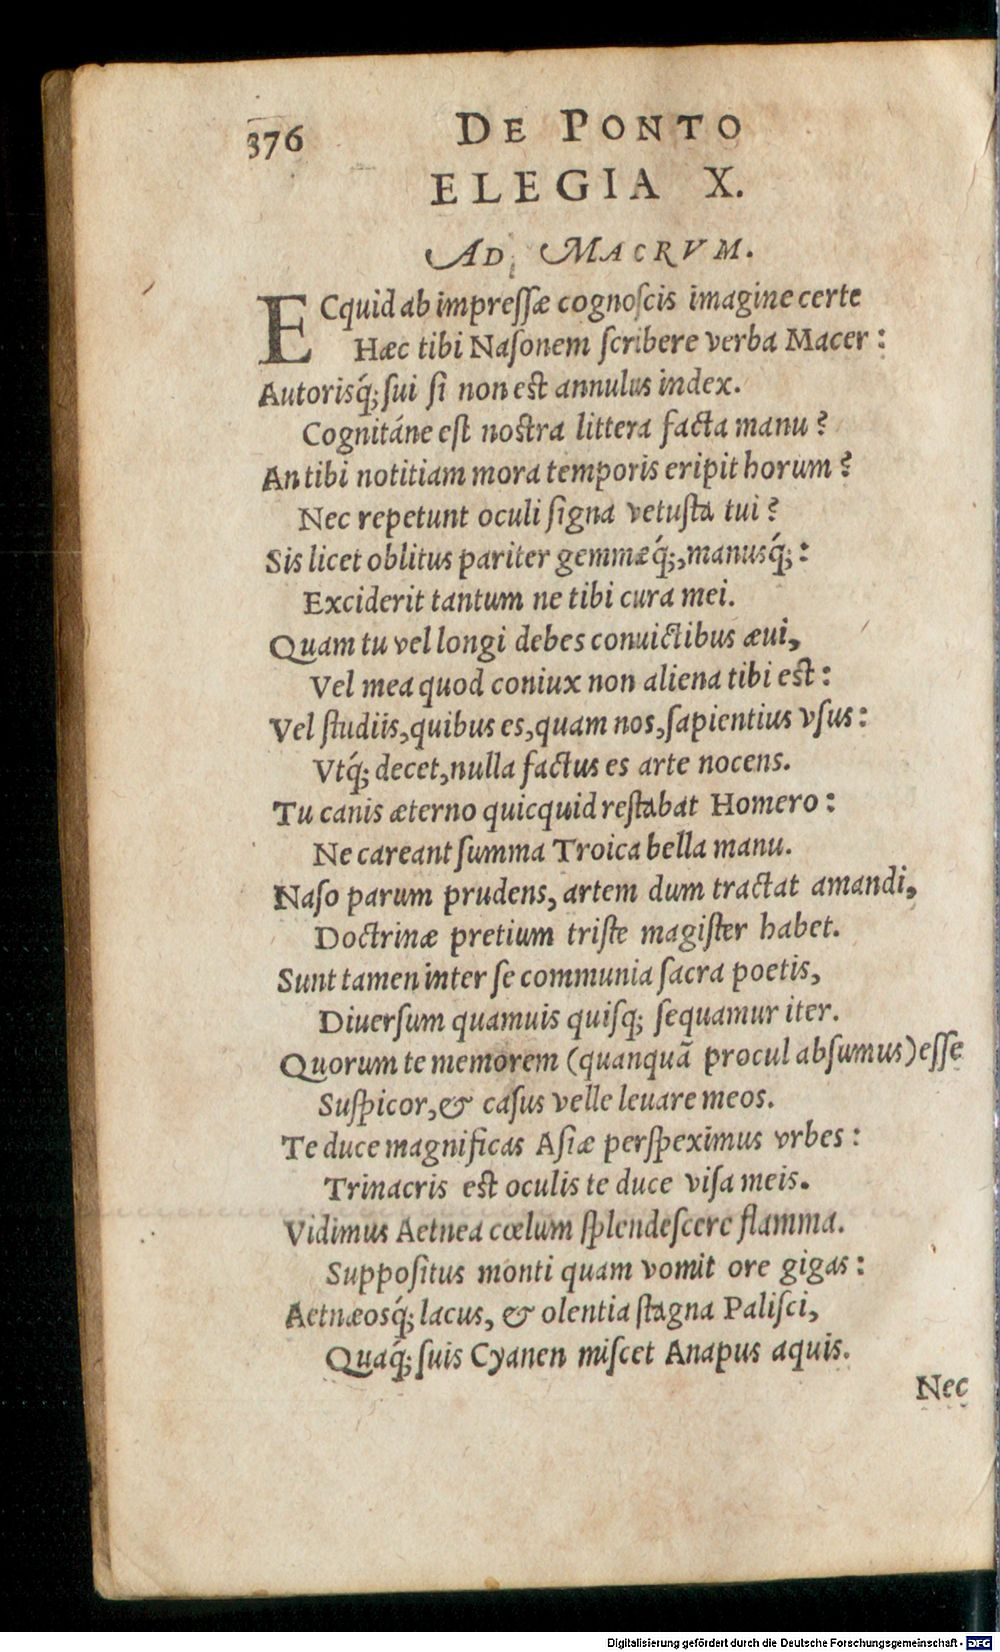 376 DE PONTO
ELEGIA X.
AD MACRVM.
ECquid ab impreſſæ cognoſcis imagine certe
Hæc tibi Naſonem ſcribere verba Macer:
Autorisq́; ſui ſi non est annulus index.
Cognitáne eſt nostra littera facta manu?
An tibi notitiam mora temporis eripit horum?
Nec repetunt oculi ſigna vetuſta tui?
Sis licet oblitus pariter gemmæq́;, manusq́;:
Exciderit tantum ne tibi cura mei.
Quam tu vel longi debes conuictibus æui,
Vel mea quod coniux non aliena tibi est:
Vel ſtudiis, quibus es, quam nos, ſapientius vſus:
Vtq́; decet, nulla factus es arte nocens.
Tu canis æterno quicquid reſtabat Homero:
Ne careant ſumma Troica bella manu.
Naſo parum prudens, artem dum tractat amandi,
Doctrinæ pretium triſte magiſter habet.
Sunt tamen inter ſe communia ſacra poetis,
Diuerſum quamuis quiſq; ſequamur iter.
Quorum te memorem (quanquã procul abſumus) eſſe
Suſpicor, & caſus velle leuare meos.
Te duce magnificas Aſiæ perſpeximus vrbes:
Trinacris est oculis te duce viſa meis.
Vidimus Aetnea cœlum ſplendeſcere flamma.
Suppoſitus monti quam vomit ore gigas:
Aetnæosq́; lacus, & olentia ſtagna Paliſci,
Quaq́; ſuis Cyanen miſcet Anapus aquis.
Nec
Digitalisierung gefördert durch die Deutsche Forschungsgemeinschaft - DFG